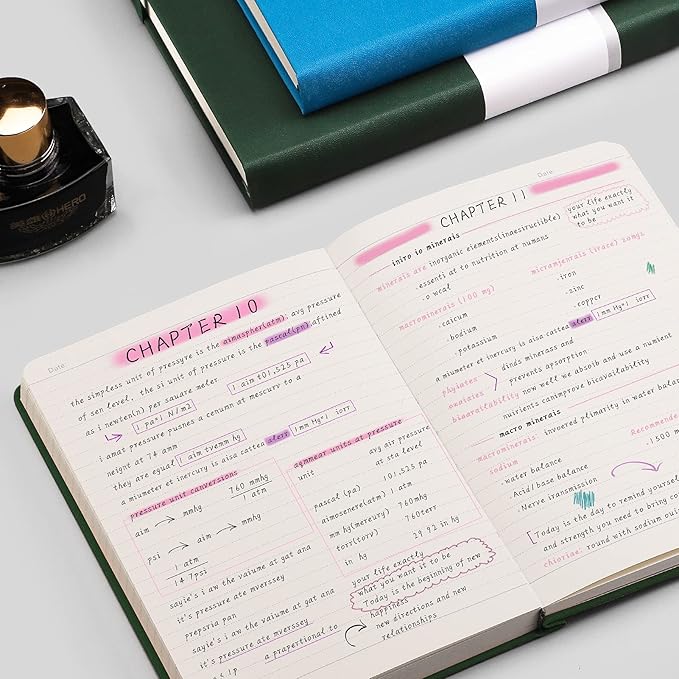 HERO
Date:
CHAPTER 10
the simpless unit of pressyre is the aimaspher(atm). avg pressure
of sen level. the si unit of pressure is the pascal(pn) aftined
as i newten(n) par square meler.
1 pa=1 N/m2
1 aim t01,525 pa
i amat pressure pusnes a cenunn at mescurv to a
neignt at 76 amm
they are equal 1 aim tvemm hg
a miumeter et inercury is aisa cattea alerr 1 mm Hg=1 iorr
pressure unit canversions
aim → mmhg
760 mmhg
1 atm
psi → aim → mmhg
1 atm
14 7psi
agmmear units at pressure
unit
avg air pressure
at sta level
pascal (pa) 101,525 pa
aimosenere(atm) 1 atm
mm hg(mereury) 760mhg
torr(torv) 760terr
in hg 29 92 in hg
sayie's i aw the vaiume at gat ana
it's pressure ate mverssey
prepsria pan
sayie's i aw the vaiume at gat ana
it's pressure ate mverssey
a prapertional to
your life exactly
what you want it to be
Today is the beginning of new
happiness
new directions and new
relationships
Date:
CHAPTER 11
your life exactly
what you want it
to be
iniro io minerais
minerais are inorganic elements(inaesiruciible)
.essenti at to nutrition at numans
.o wcal
macrominerais (100 mg)
.caicum
.bodium
.potassium
micramjenrais (irace) zamgs
.iron
.zinc
.copper
a miumeter et inercury is aisa cattea alerr 1 mm Hg=1 iorr
phyiates
oxaiaies
dinds minerass and
prevents apsorption
bioavailability now well we absoib and use a nutient
nutirients canimprove bicavailability
macro minerais
macrominerais invoered plimarity in water balance
sodium
.water balance
.Acid / base balance
.Nerve transmission
Recommende
.1500 m
Today is the day to remind yourself
and strength you need to bring co
chioriae: round with sodium ouis